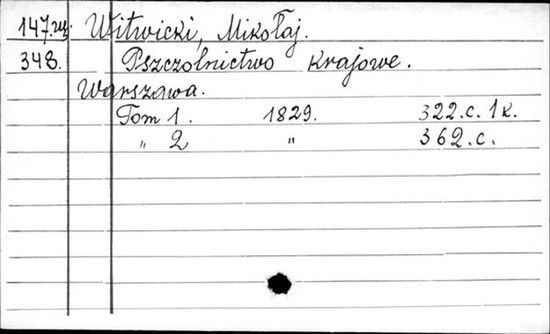 147. Witwicki, Mikołaj.
348. Pszczolnictwo Krajowe.
Warszawa.
Tom 1. 1829. 322.c. 1k.
„ 2 „ 362.c.